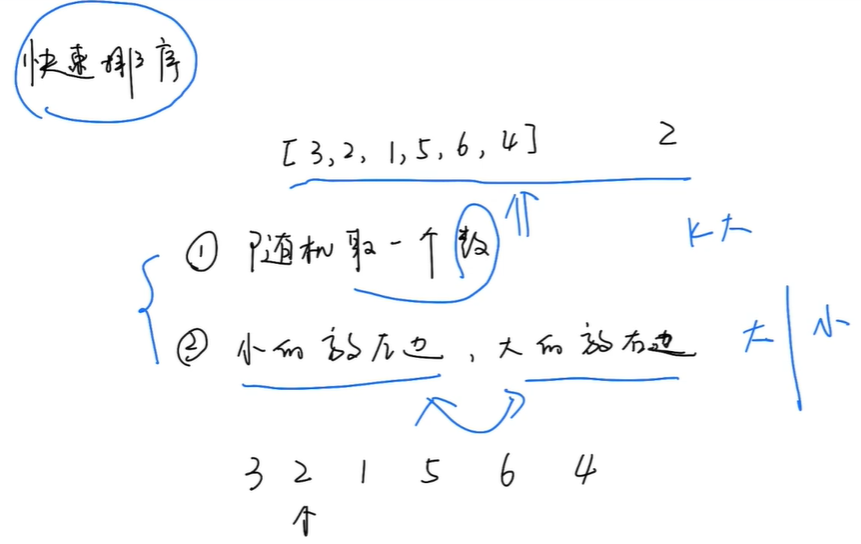 快速排序
[3,2,1,5,6,4] 2
① 随机取一个数
K大
② 小的放左边，大的放右边
大|小
3 2 1 5 6 4